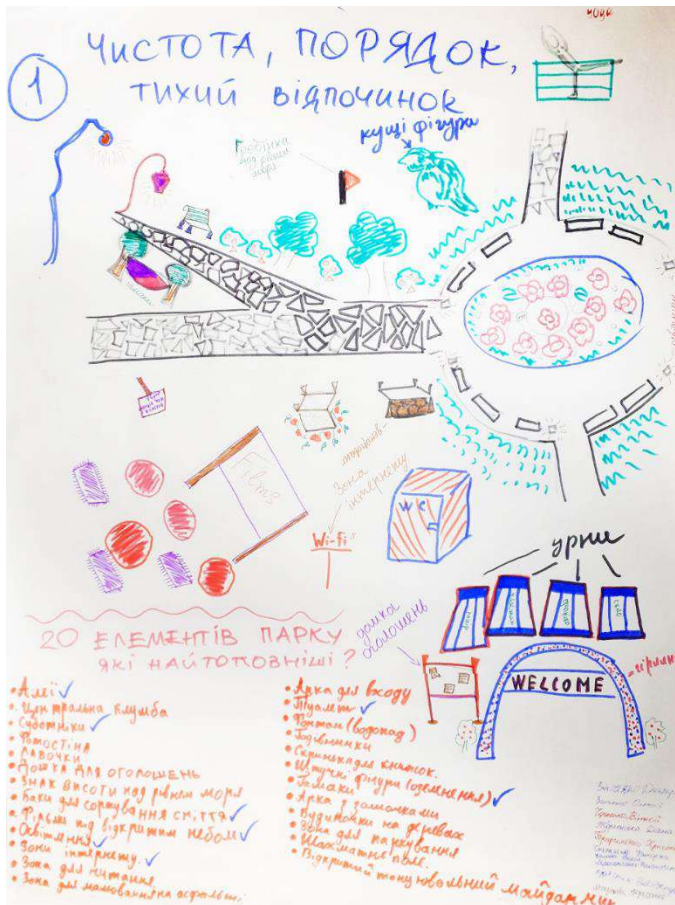 йога
ЧИСТОТА, ПОРЯДОК,
1
ТИХИЙ ВІДПОЧИНОК
кущі фігури
над рівнем
моря
Films
Зона
інтернету
Wi-fi
WC
урни
дошка
оголошень
WELCOME
20 ЕЛЕМЕНТІВ ПАРКУ
ЯКІ НАЙТОПОВНІШІ?
• Алеї ✓
• Центральна клумба
• Суботники ✓
• Фотостіна
• Лавочки
• Дошка для оголошень
• Знак висоти над рівнем моря
• Баки для сортування сміття ✓
• Фільми під відкритим небом ✓
• Освітлення ✓
• Зони інтернету. ✓
• Зона для читання
• Зона для малювання на асфальті
• Арка для входу
• Туалет ✓
• Фонтан (водопад)
• Годівнички
• Скринька для книжок.
• Штучні фігури (озеленення) ✓
• Гамаки
• Арка з замочками
• Будиночки на деревах
• Зона для паркування
• Шахматне поле.
• Відкритий танцювальний майданчик